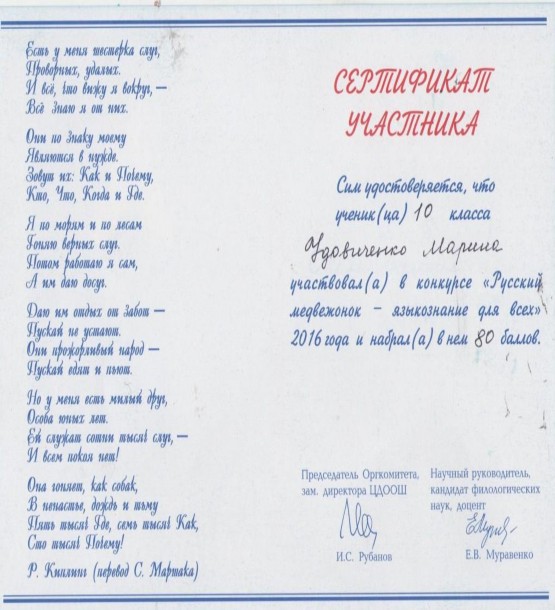 Есть у меня шестерка слуг,
Проворных, удалых.
И всё, что вижу я вокруг, —
Всё знаю я от них.
Они по знаку моему
Являются в нужде.
Зовут их: Как и Почему,
Кто, Что, Когда и Где.
Я по морям и по лесам
Гоняю верных слуг.
Потом работаю я сам,
А им даю досуг.
Даю им отдых от забот —
Пускай не устают.
Они прожорливый народ —
Пускай едят и пьют.
Но у меня есть милый друг,
Особа юных лет.
Ей служат сотни тысяч слуг, —
И всем покоя нет!
Она гоняет, как собак,
В ненастье, дождь и тьму
Пять тысяч Где, семь тысяч Как,
Сто тысяч Почему!
Р. Киплинг (перевод С. Мартака)
СЕРТИФИКАТ
УЧАСТНИКА
Сим удостоверяется, что
ученик(ца) 10 класса
Удовиченко Марина
участвовал(а) в конкурсе «Русский
медвежонок – языкознание для всех»
2016 года и набрал(а) в нем 80 баллов.
Председатель Оргкомитета,
зам. директора ЦДООШ
И.С. Рубанов
Научный руководитель,
кандидат филологических
наук, доцент
Е.В. Муравенко